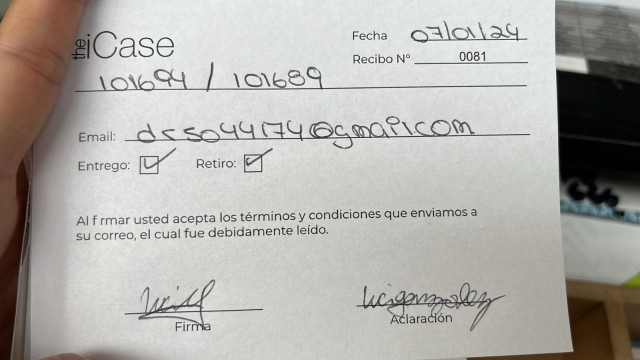 the iCase
Fecha 07/01/24
Recibo Nº 0081
101694 / 101689
Email: dsso44174@gmail.com
Entrego: Retiro:
Al f rmar usted acepta los términos y condiciones que enviamos a
su correo, el cual fue debidamente leído.
Firma
Aclaración